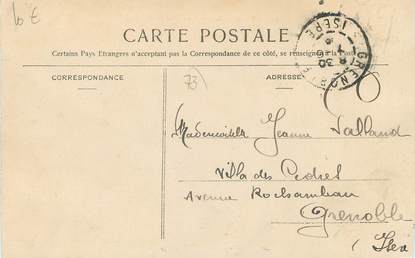 10 €
CARTE POSTALE
Certains Pays Etrangers n'acceptant pas la Correspondance de ce côté, se renseigner à la Poste
CORRESPONDANCE
ADRESSE
GRENOBLE
ISERE
8 30
Mademoiselle Jeanne Salland
Villa des Cèdres
Avenue Rochambeau
Grenoble
(Isère